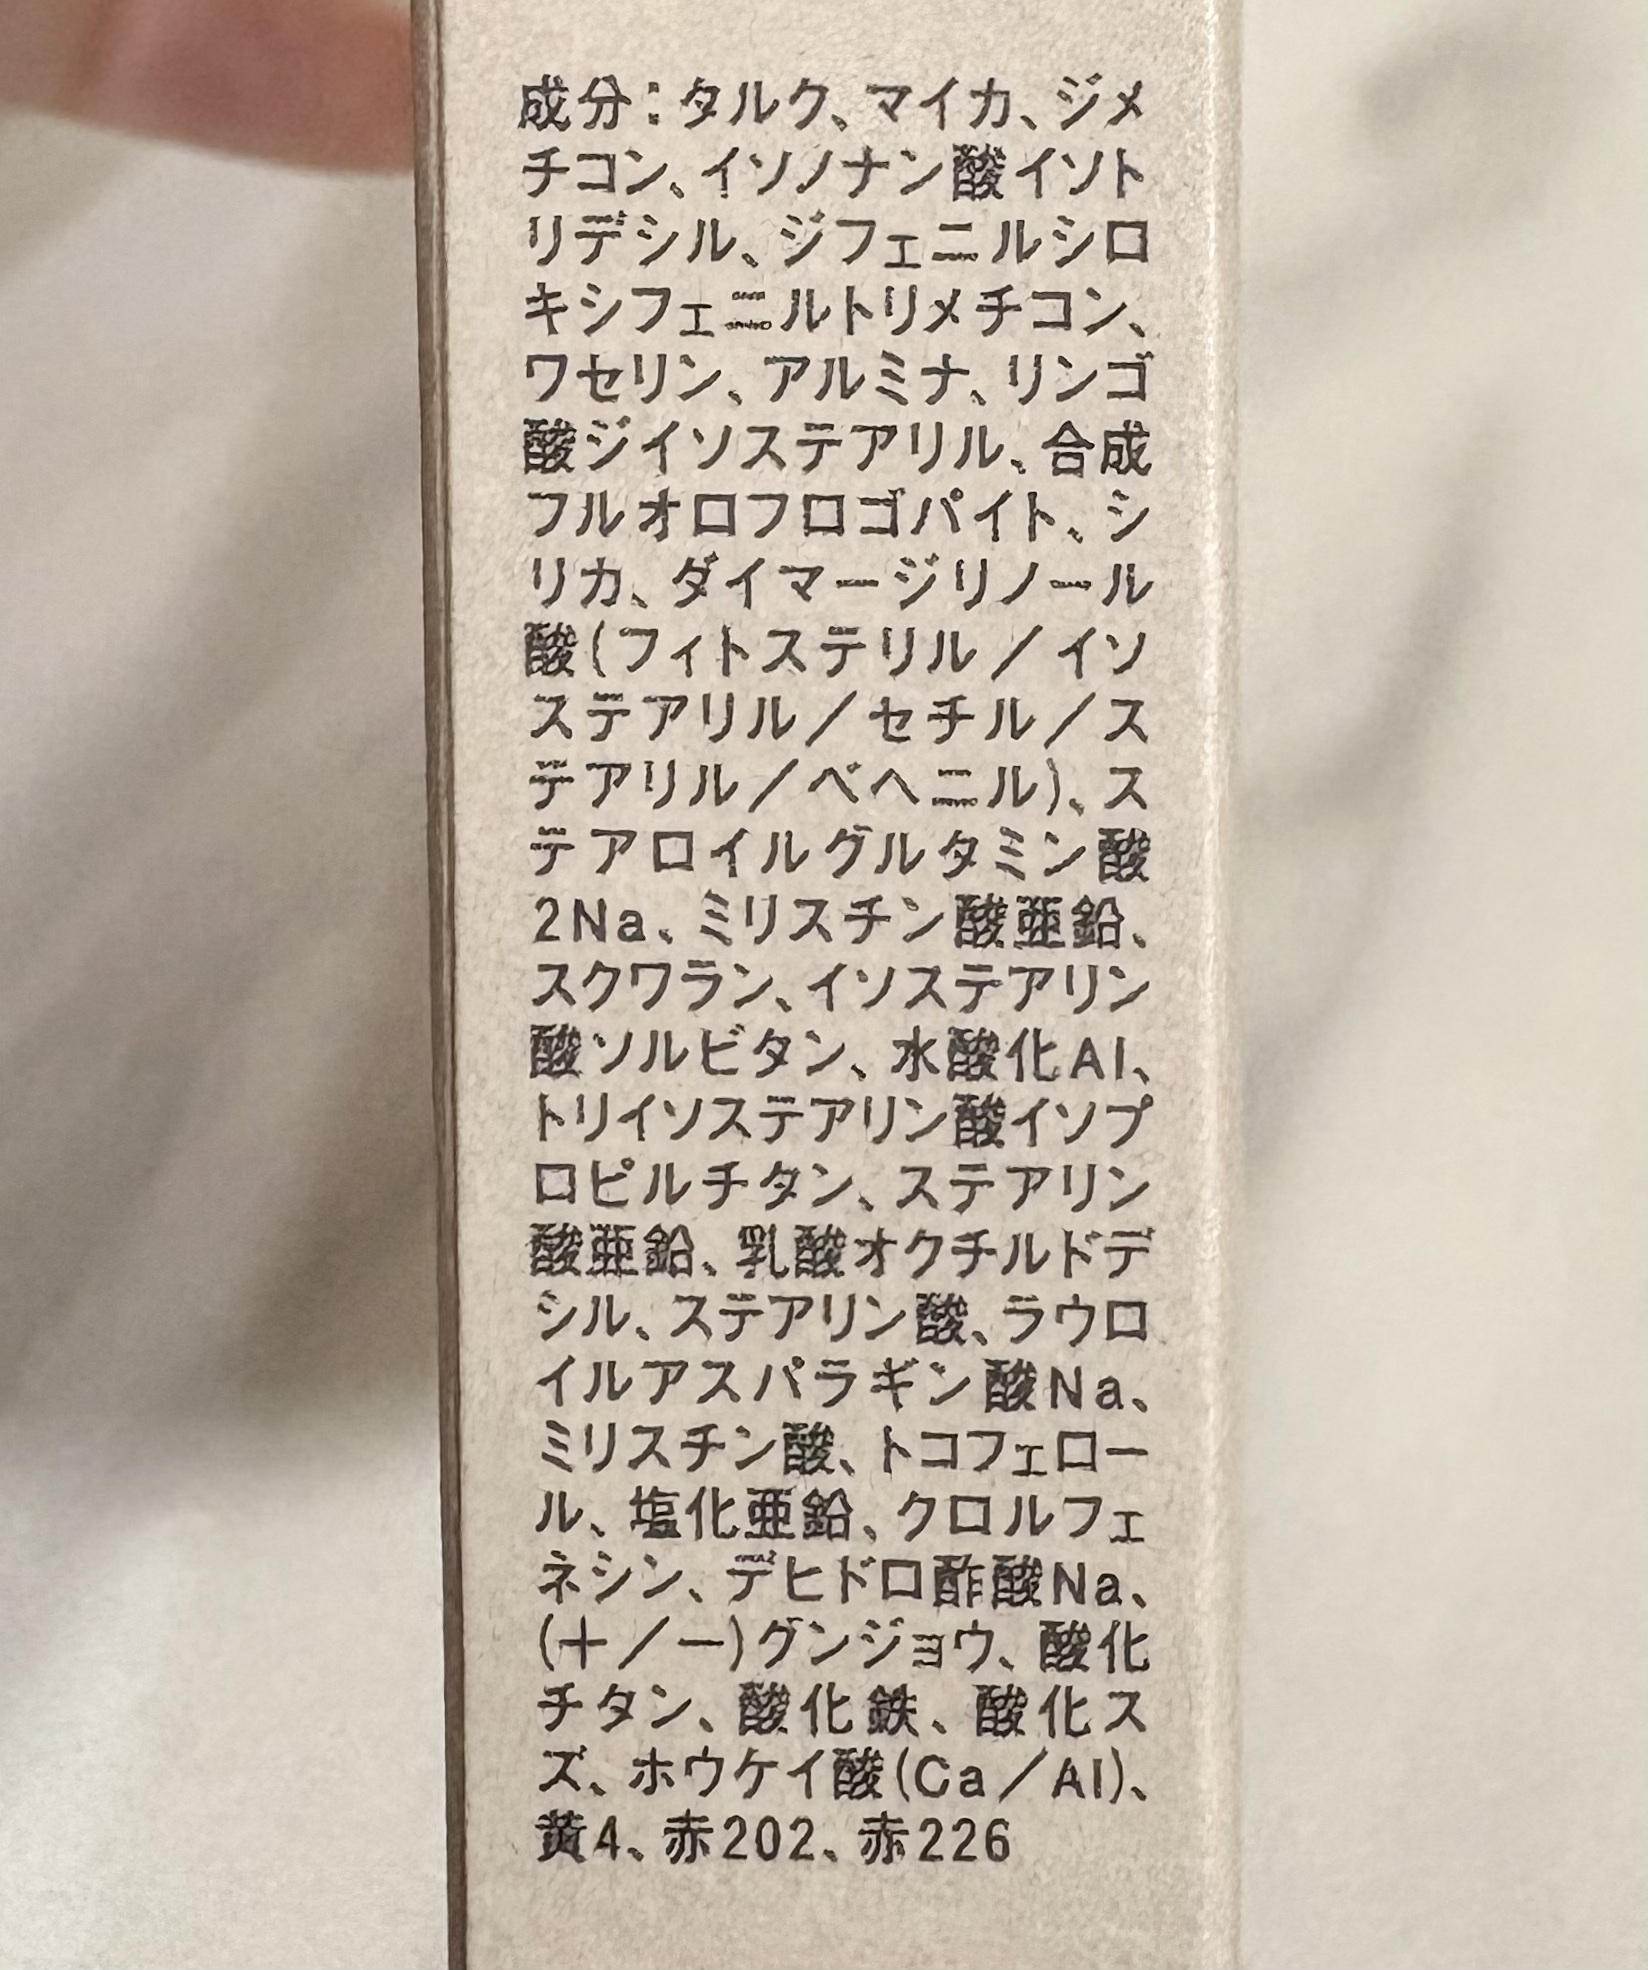 成分：タルク、マイカ、ジメ
チコン、イソノナン酸イソト
リデシル、ジフェニルシロ
キシフェニルトリメチコン、
ワセリン、アルミナ、リンゴ
酸ジイソステアリル、合成
フルオロフロゴパイト、シ
リカ、ダイマージリノール
酸(フィトステリル／イソ
ステアリル／セチル／ス
テアリル／ベヘニル)、ス
テアロイルグルタミン酸
2Na、ミリスチン酸亜鉛、
スクワラン、イソステアリン
酸ソルビタン、水酸化Al、
トリイソステアリン酸イソプ
ロピルチタン、ステアリン
酸亜鉛、乳酸オクチルドデ
シル、ステアリン酸、ラウロ
イルアスパラギン酸Na、
ミリスチン酸、トコフェロー
ル、塩化亜鉛、クロルフェ
ネシン、デヒドロ酢酸Na、
(＋／－)グンジョウ、酸化
チタン、酸化鉄、酸化ス
ズ、ホウケイ酸(Ca／Al)、
黄4、赤202、赤226